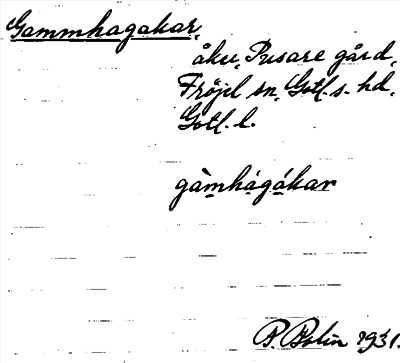 Gammhagakar,
åker, Pusare gård,
Fröjel sn, Gotl. s. hd,
Gotl. l.
gàmhágákar
P. Bolin 1931.